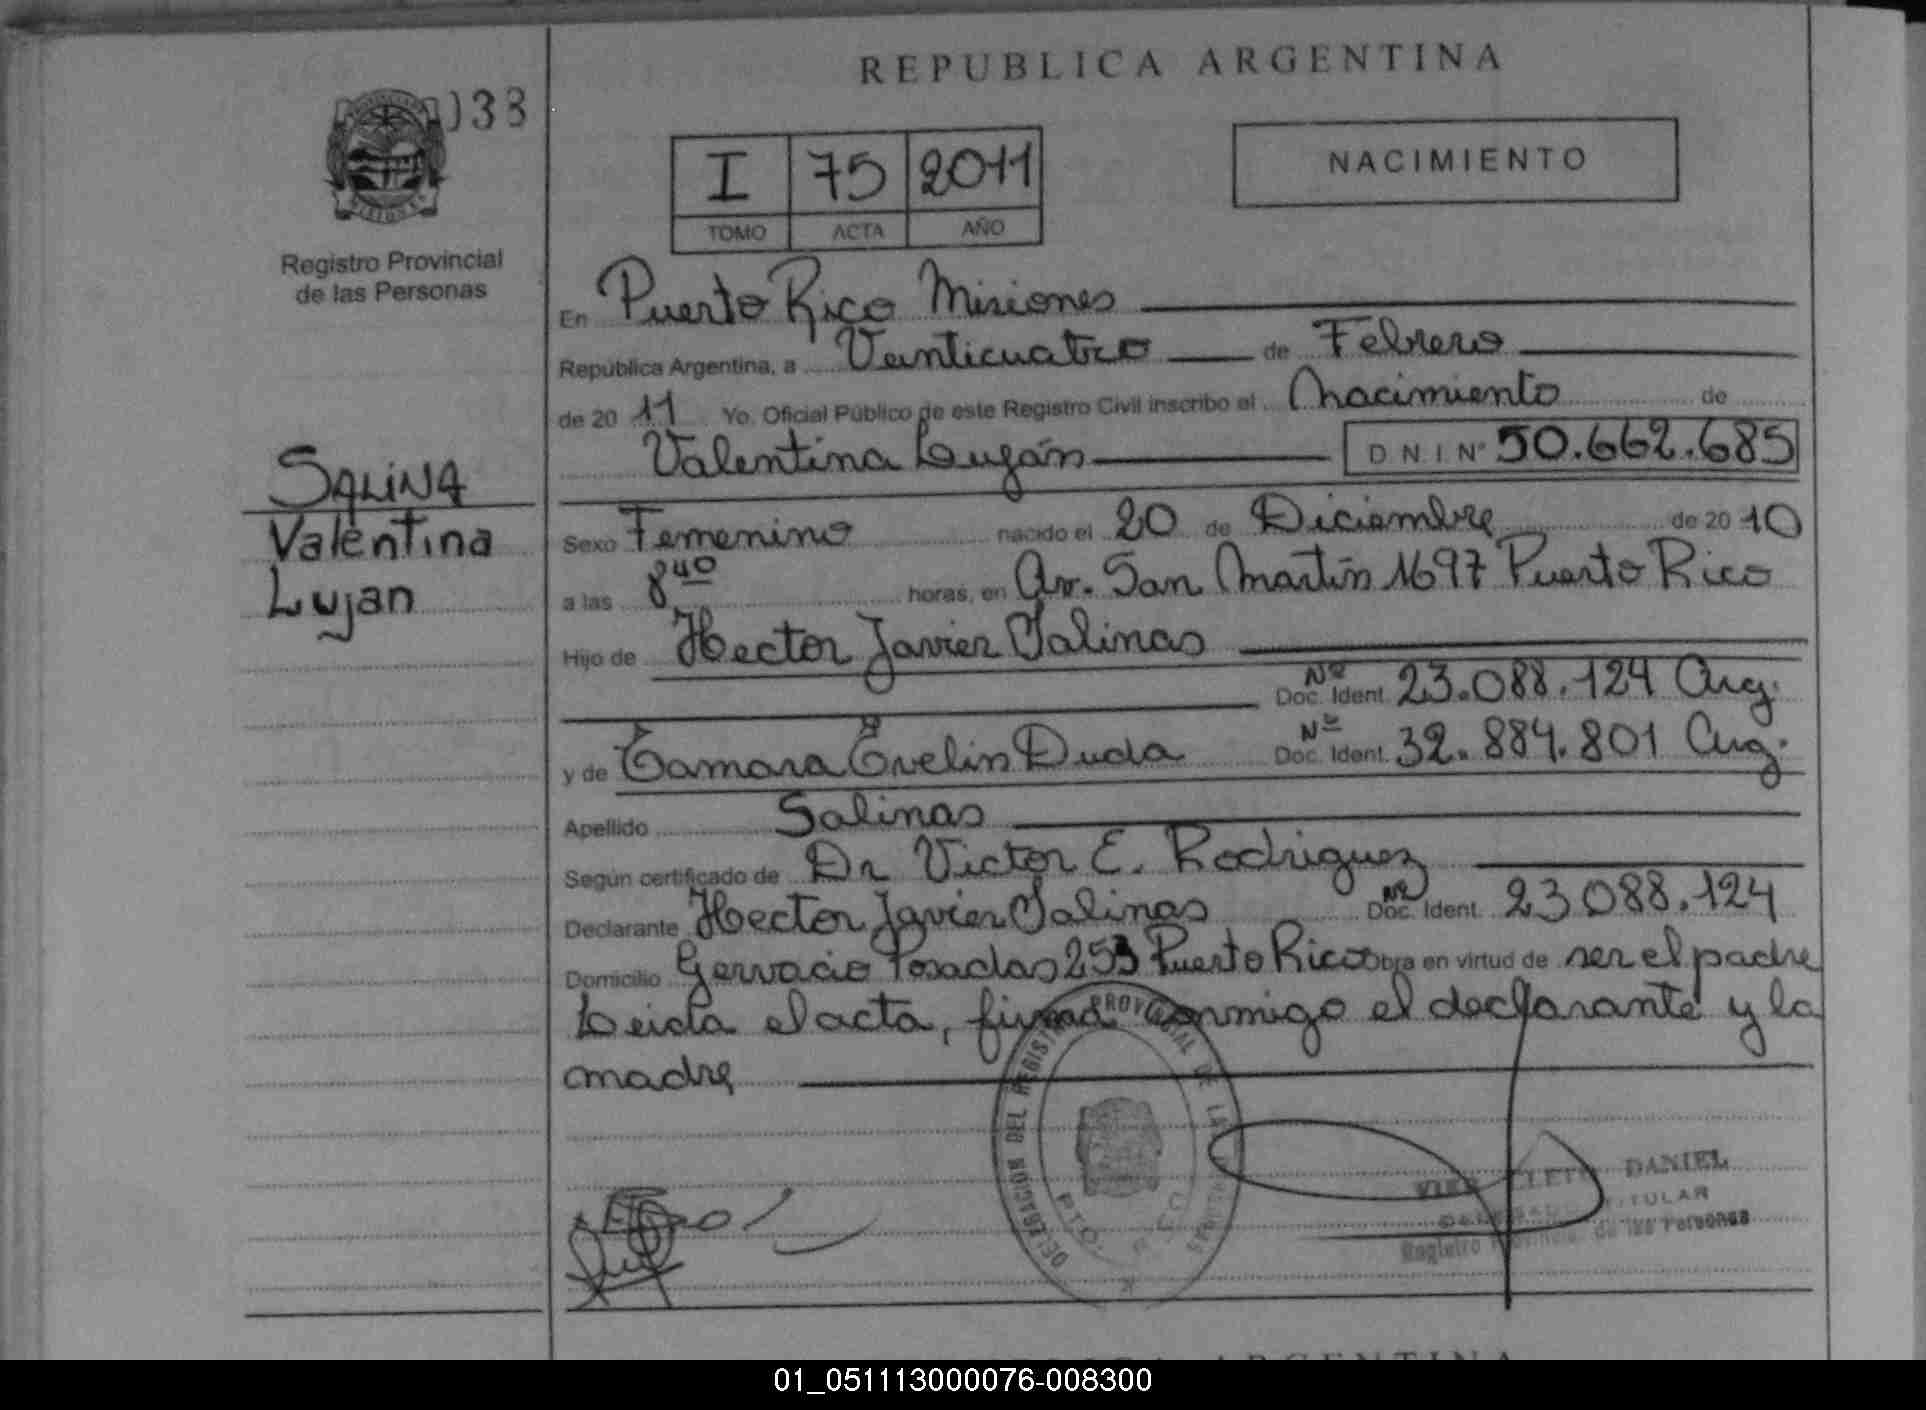 REPUBLICA ARGENTINA
038
NACIMIENTO
I 75 2011
TOMO ACTA AÑO
Registro Provincial
de las Personas
En Puerto Rico Misiones
República Argentina, a Veinticuatro de Febrero
de 20 11 Yo, Oficial Público de este Registro Civil inscribo el Nacimiento de
Valentina Luján D N I Nº 50.662.685
SALINA
Valentina
Lujan
Sexo Femenino nacido el 20 de Diciembre de 20 10
a las 8 40 horas, en Av. San Martín 1697 Puerto Rico
Hijo de Hector Javier Salinas
Nº Doc. Ident. 23.088.124 Arg.
y de Tamara Evelin Duda Nº Doc. Ident. 32.884.801 Arg.
Apellido Salinas
Según certificado de Dr Victor E. Rodriguez
Declarante Hector Javier Salinas Nº Doc. Ident. 23088.124
Domicilio Gervacio Posadas 253 Puerto Rico Obra en virtud de ser el padre
Leida el acta, firma conmigo el declarante y la
madre
DELEGACION DEL REGISTRO PROVINCIAL DE LAS
PTO. RICO
DANIEL
TITULAR
Registro Provincial de las Personas
ARGENTINA
01_051113000076-008300